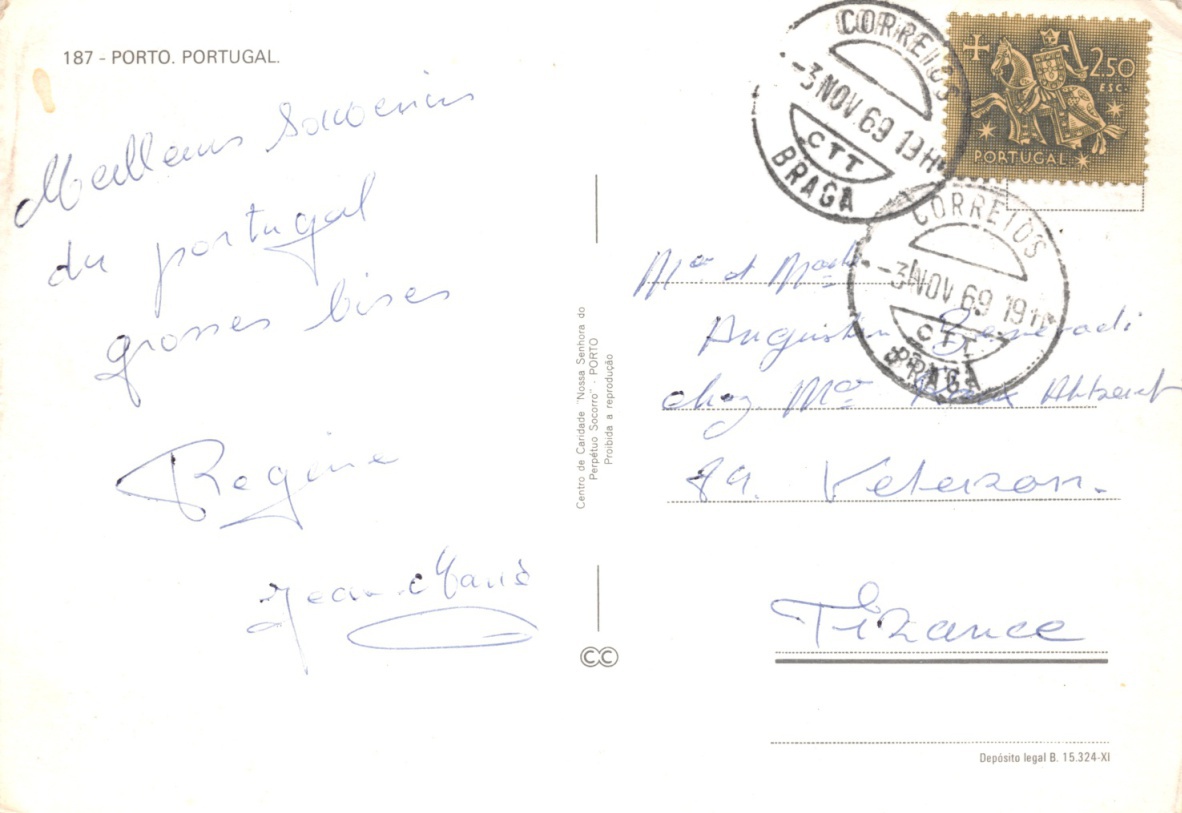 187 - PORTO. PORTUGAL.
Meilleurs Souvenirs
du portugal
grosses bises
Regine
Jean-Marie
Centro de Caridade "Nossa Senhora do
Perpétuo Socorro" - PORTO
Proibida a reprodução
CC
CORREIOS
-3 NOV. 69 19H
CTT
BRAGA
2$50
ESC.
PORTUGAL
CORREIOS
-3 NOV. 69 19H
CTT
BRAGA
Mr et
Augustin
chez Mr
89. Vélizon.
France
Depósito legal B. 15.324-XI